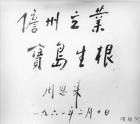 儋州立業
寶島生根
周恩来
一九六〇年二月十日